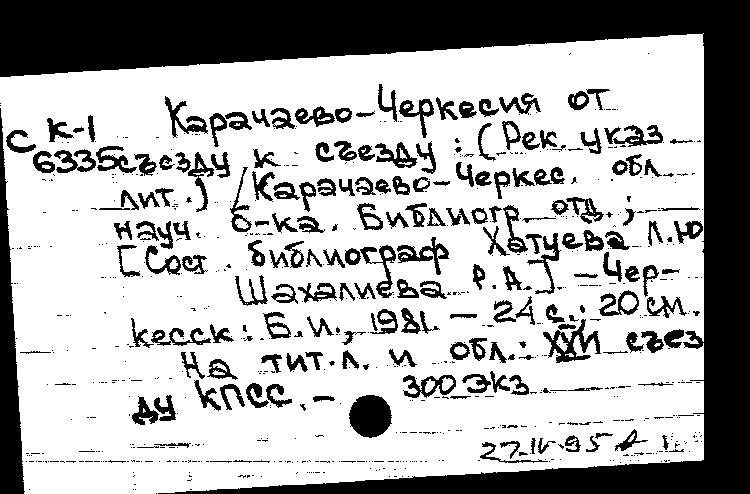 С К-1 Карачаево-Черкесия от
6335 съезду к съезду : (Рек. указ.
лит.) / Карачаево-Черкес. обл.
науч. б-ка. Библиогр. отд. ;
[Сост. библиограф Хатуева Л.Ю
Шахалиева Р.А.] - Чер-
кесск : Б.и., 1981. - 24 с.; 20 см.
На тит.л. и обл.: XXVI съез
ду КПСС. - 300 экз.
27-IV-95